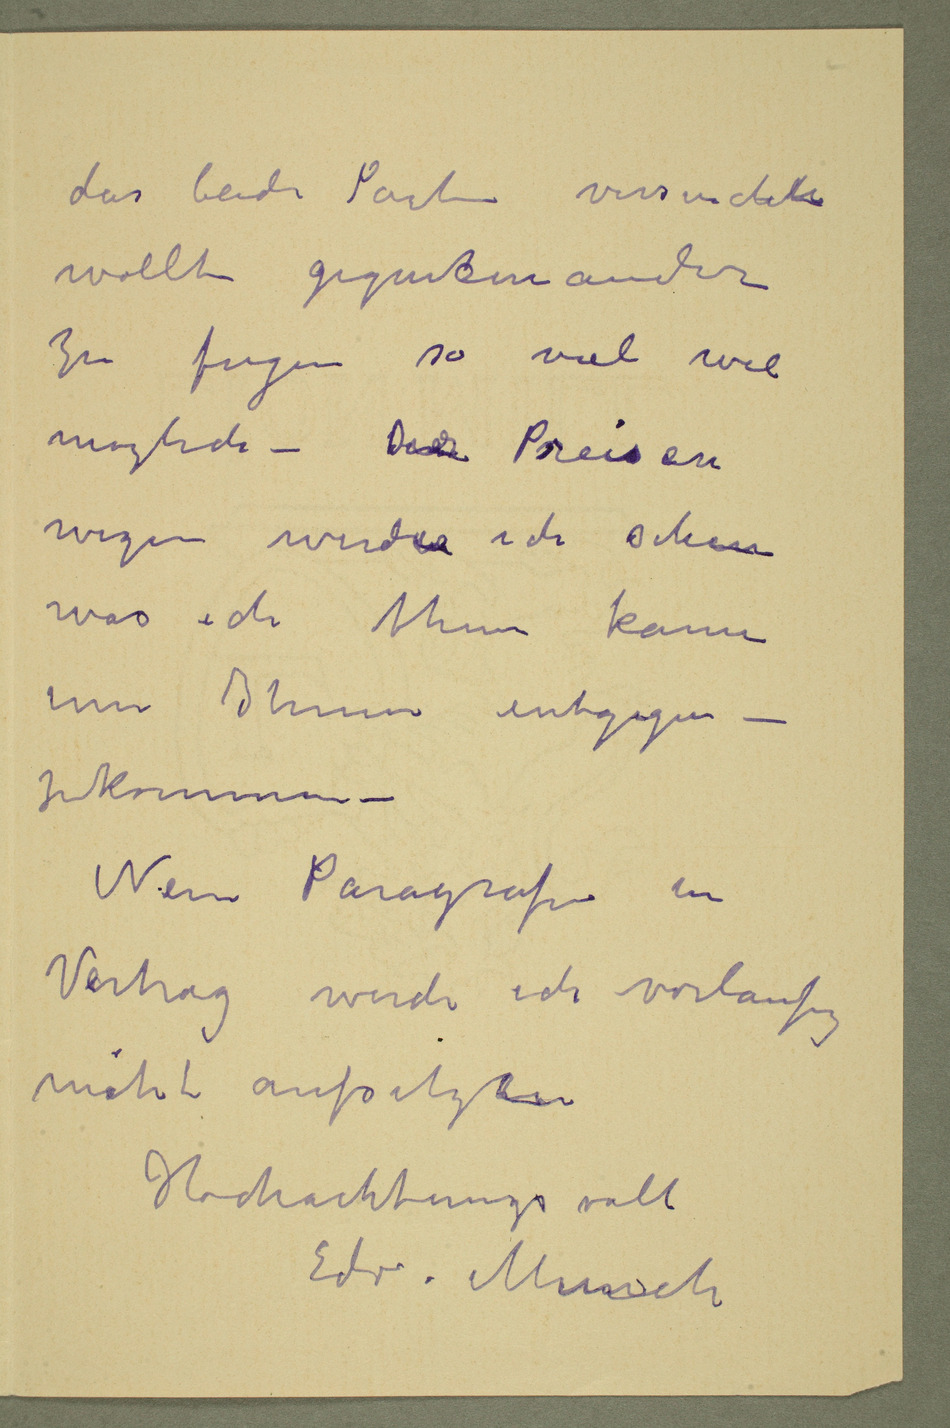 das beide Parten versuchten
wollten gegneneinander
zu fugen so viel wie
moglich – Der Preisen
wegen werde ich sehen
was ich thun kann
um Ihnen entgegen –
zukommen –
Neue Paragrafen in
Vertrag werde ich vorlaufig
nicht aufsetzen
Hochachtungsvoll
Edv. Munch